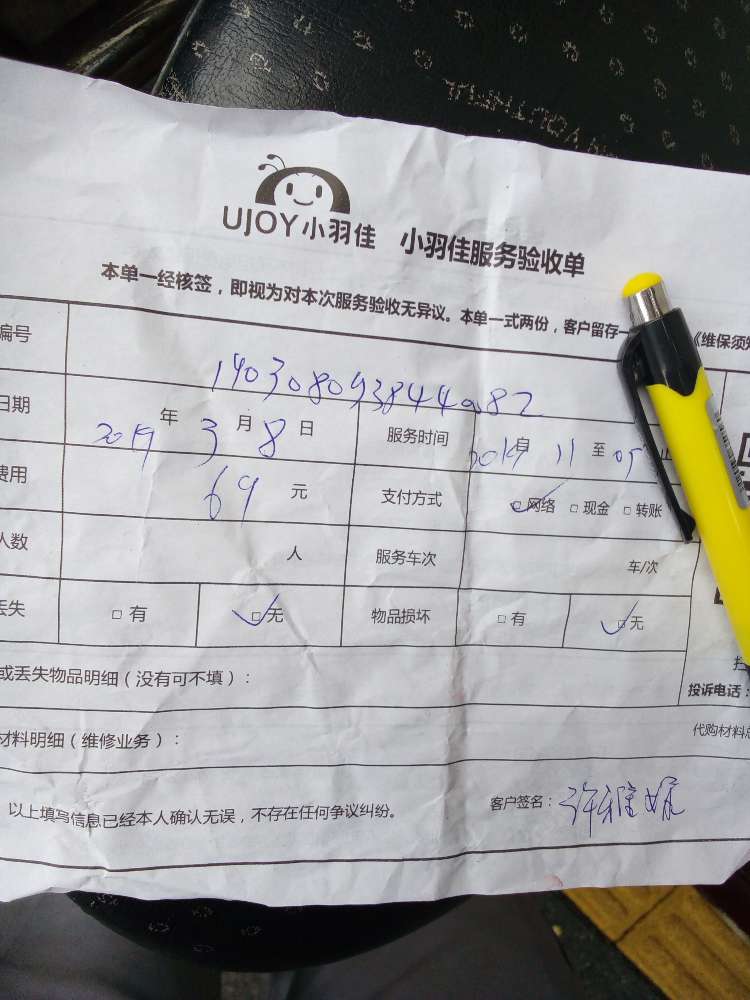 UJOY小羽佳 小羽佳服务验收单
本单一经核签，即视为对本次服务验收无异议。本单一式两份，客户留存一
《维保须知
编号
日期 2019 年 3 月 8 日 服务时间 自 11 至 05 止
费用 69 元 支付方式 网络 □ 现金 □ 转账
人数 人 服务车次 车/次
丢失 □ 有 □ 无 物品损坏 □ 有 □ 无
或丢失物品明细（没有可不填）：
投诉电话：
材料明细（维修业务）：
代购材料总
以上填写信息已经本人确认无误，不存在任何争议纠纷。 客户签名：